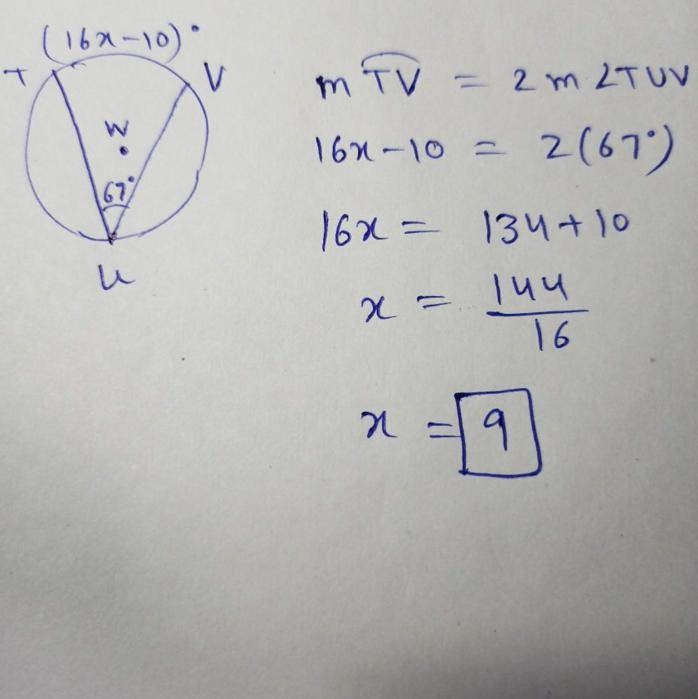 (16x-10)°
T
V
W
67°
U
m TV = 2 m ∠TUV
16x-10 = 2(67°)
16x = 134+10
x = 144/16
x = 9